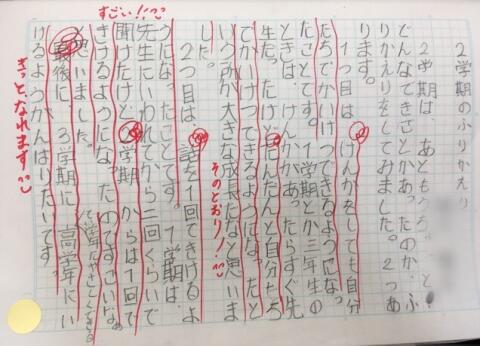 2学期のふりかえり
2学期は、あともう少
どんなできごとがあったのか、ふ
りかえりをしてみました。2つあ
ります。
1つ目は、けんかをしても自分
たちでかいけつできるようになっ
たことです。1学期とか三年生の
ときは、けんかがあったらすぐ先
生だったけどだんだんと自分たち
でかいけつできるようになったと
いう所が大きな成長だなと思いま
した。
そのとおり!
2つ目は、話を1回できけるよ
うになったことです。1学期は、
すごい!!
先生にいわれてから二回くらいで
聞けたけど2学期からは1回で
きけるようになったのですごいなぁ
と思いました。
最後に、3学期に高学年に
けるようがんばりたいです。
きっとなれます